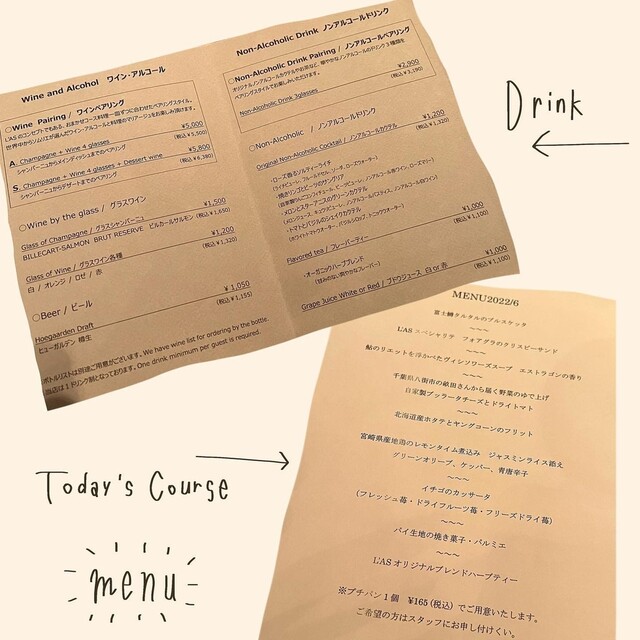 Wine and Alcohol ワイン・アルコール
○Wine Pairing / ワインペアリング
A. Champagne + Wine 4 glasses ¥5,000
シャンパーニュからメインディッシュまでのペアリング (税込¥5,500)
S. Champagne + Wine 4 glasses + Dessert wine ¥5,800
シャンパーニュからデザートまでのペアリング (税込¥6,380)
○Wine by the glass / グラスワイン
Glass of Champagne / グラスシャンパーニュ ¥1,500
BILLECART-SALMON BRUT RESERVE ビルカールサルモン (税込¥1,650)
Glass of Wine / グラスワイン各種 ¥1,200
白 / オレンジ / ロゼ / 赤 (税込¥1,320)
○Beer / ビール
Hoegaarden Draft ¥1,050
ヒューガルデン 樽生 (税込¥1,155)
ボトルリストは別途ご用意がございます。We have wine list for ordering by the bottle.
当店は1ドリンク制となっております。One drink minimum per guest is required.
Non-Alcoholic Drink ノンアルコールドリンク
○Non-Alcoholic Drink Pairing / ノンアルコールペアリング
ペアリングスタイルでお楽しみいただけます。 ¥2,900
Non-Alcoholic Drink 3glasses (税込¥3,190)
○Non-Alcoholic / ノンアルコールドリンク
Original Non-Alcoholic Cocktail / ノンアルコールカクテル ¥1,200
(税込¥1,320)
・ローズ香るソルティーライチ
・焼きリンゴとビーツのサングリア
・メロンとスターアニスのグリーンカクテル
・トマトとバジルのシェイクカクテル
(ホワイトトマトウォーター、バジルシロップ、トニックウォーター)
Flavored tea / フレーバーティー ¥1,000
(税込¥1,100)
・オーガニックハーブブレンド
(甘みのない爽やかなフレーバー)
Grape Juice White or Red / ブドウジュース 白 or 赤 ¥1,000
(税込¥1,100)
Drink
MENU2022/6
富士鱒タルタルのブルスケッタ
~~~
L'AS スペシャリテ フォアグラのクリスピーサンド
~~~
鮎のリエットを浮かべたヴィシソワーズスープ エストラゴンの香り
~~~
千葉県八街市の畝田さんから届く野菜のゆで上げ
自家製ブッラータチーズとドライトマト
~~~
北海道産ホタテとヤングコーンのフリット
~~~
宮崎県産地鶏のレモンタイム煮込み ジャスミンライス添え
グリーンオリーブ、ケッパー、青唐辛子
~~~
イチゴのカッサータ
(フレッシュ苺・ドライフルーツ苺・フリーズドライ苺)
~~~
パイ生地の焼き菓子・パルミエ
~~~
L'ASオリジナルブレンドハーブティー
※プチパン1個 ¥165(税込)でご用意いたします。
ご希望の方はスタッフにお申し付けください。
Today's Course
menu